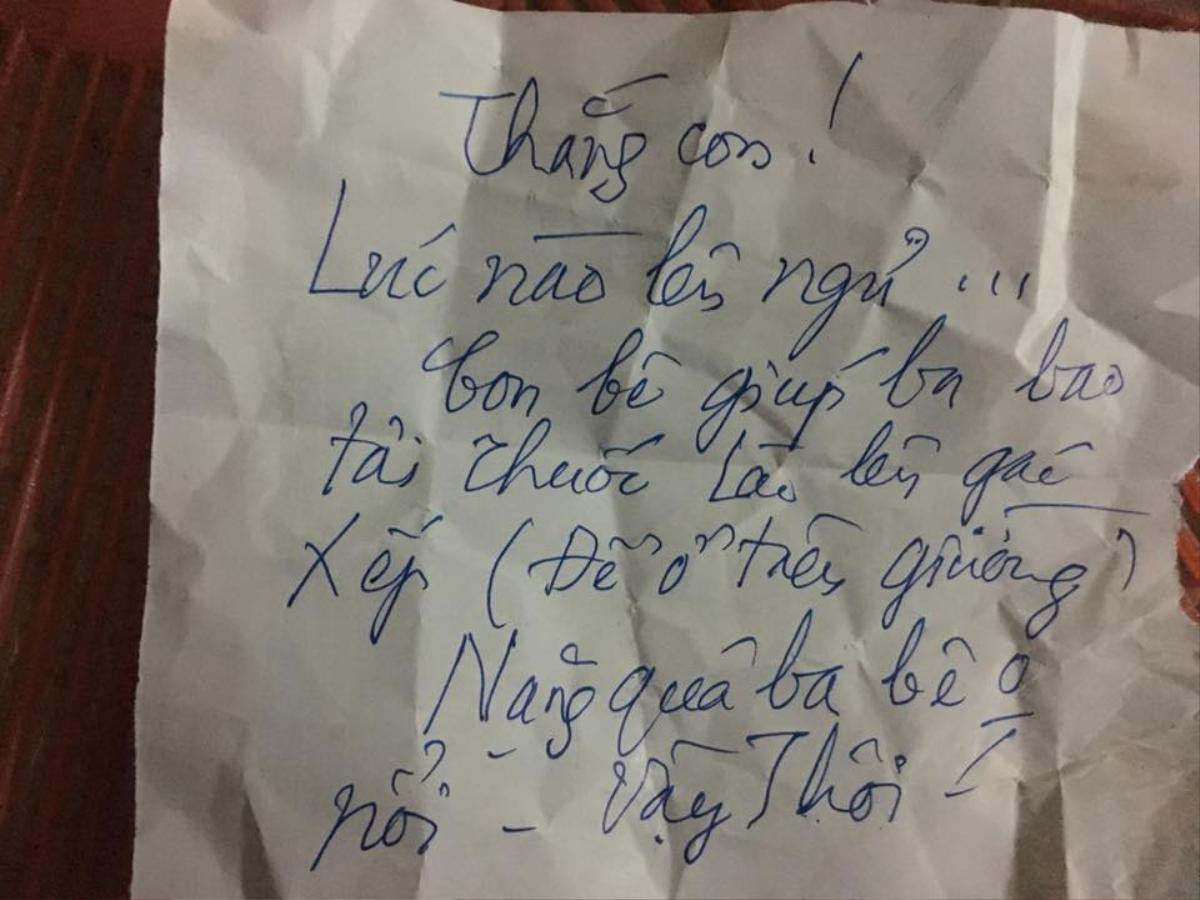 Thắng con!
Lúc nào lên ngủ ...
Con bê giúp ba bao
tải thuốc lào lên gác
xếp (Để ở trên giường)
Nặng quá ba bê o
nổi - Vậy Thôi -